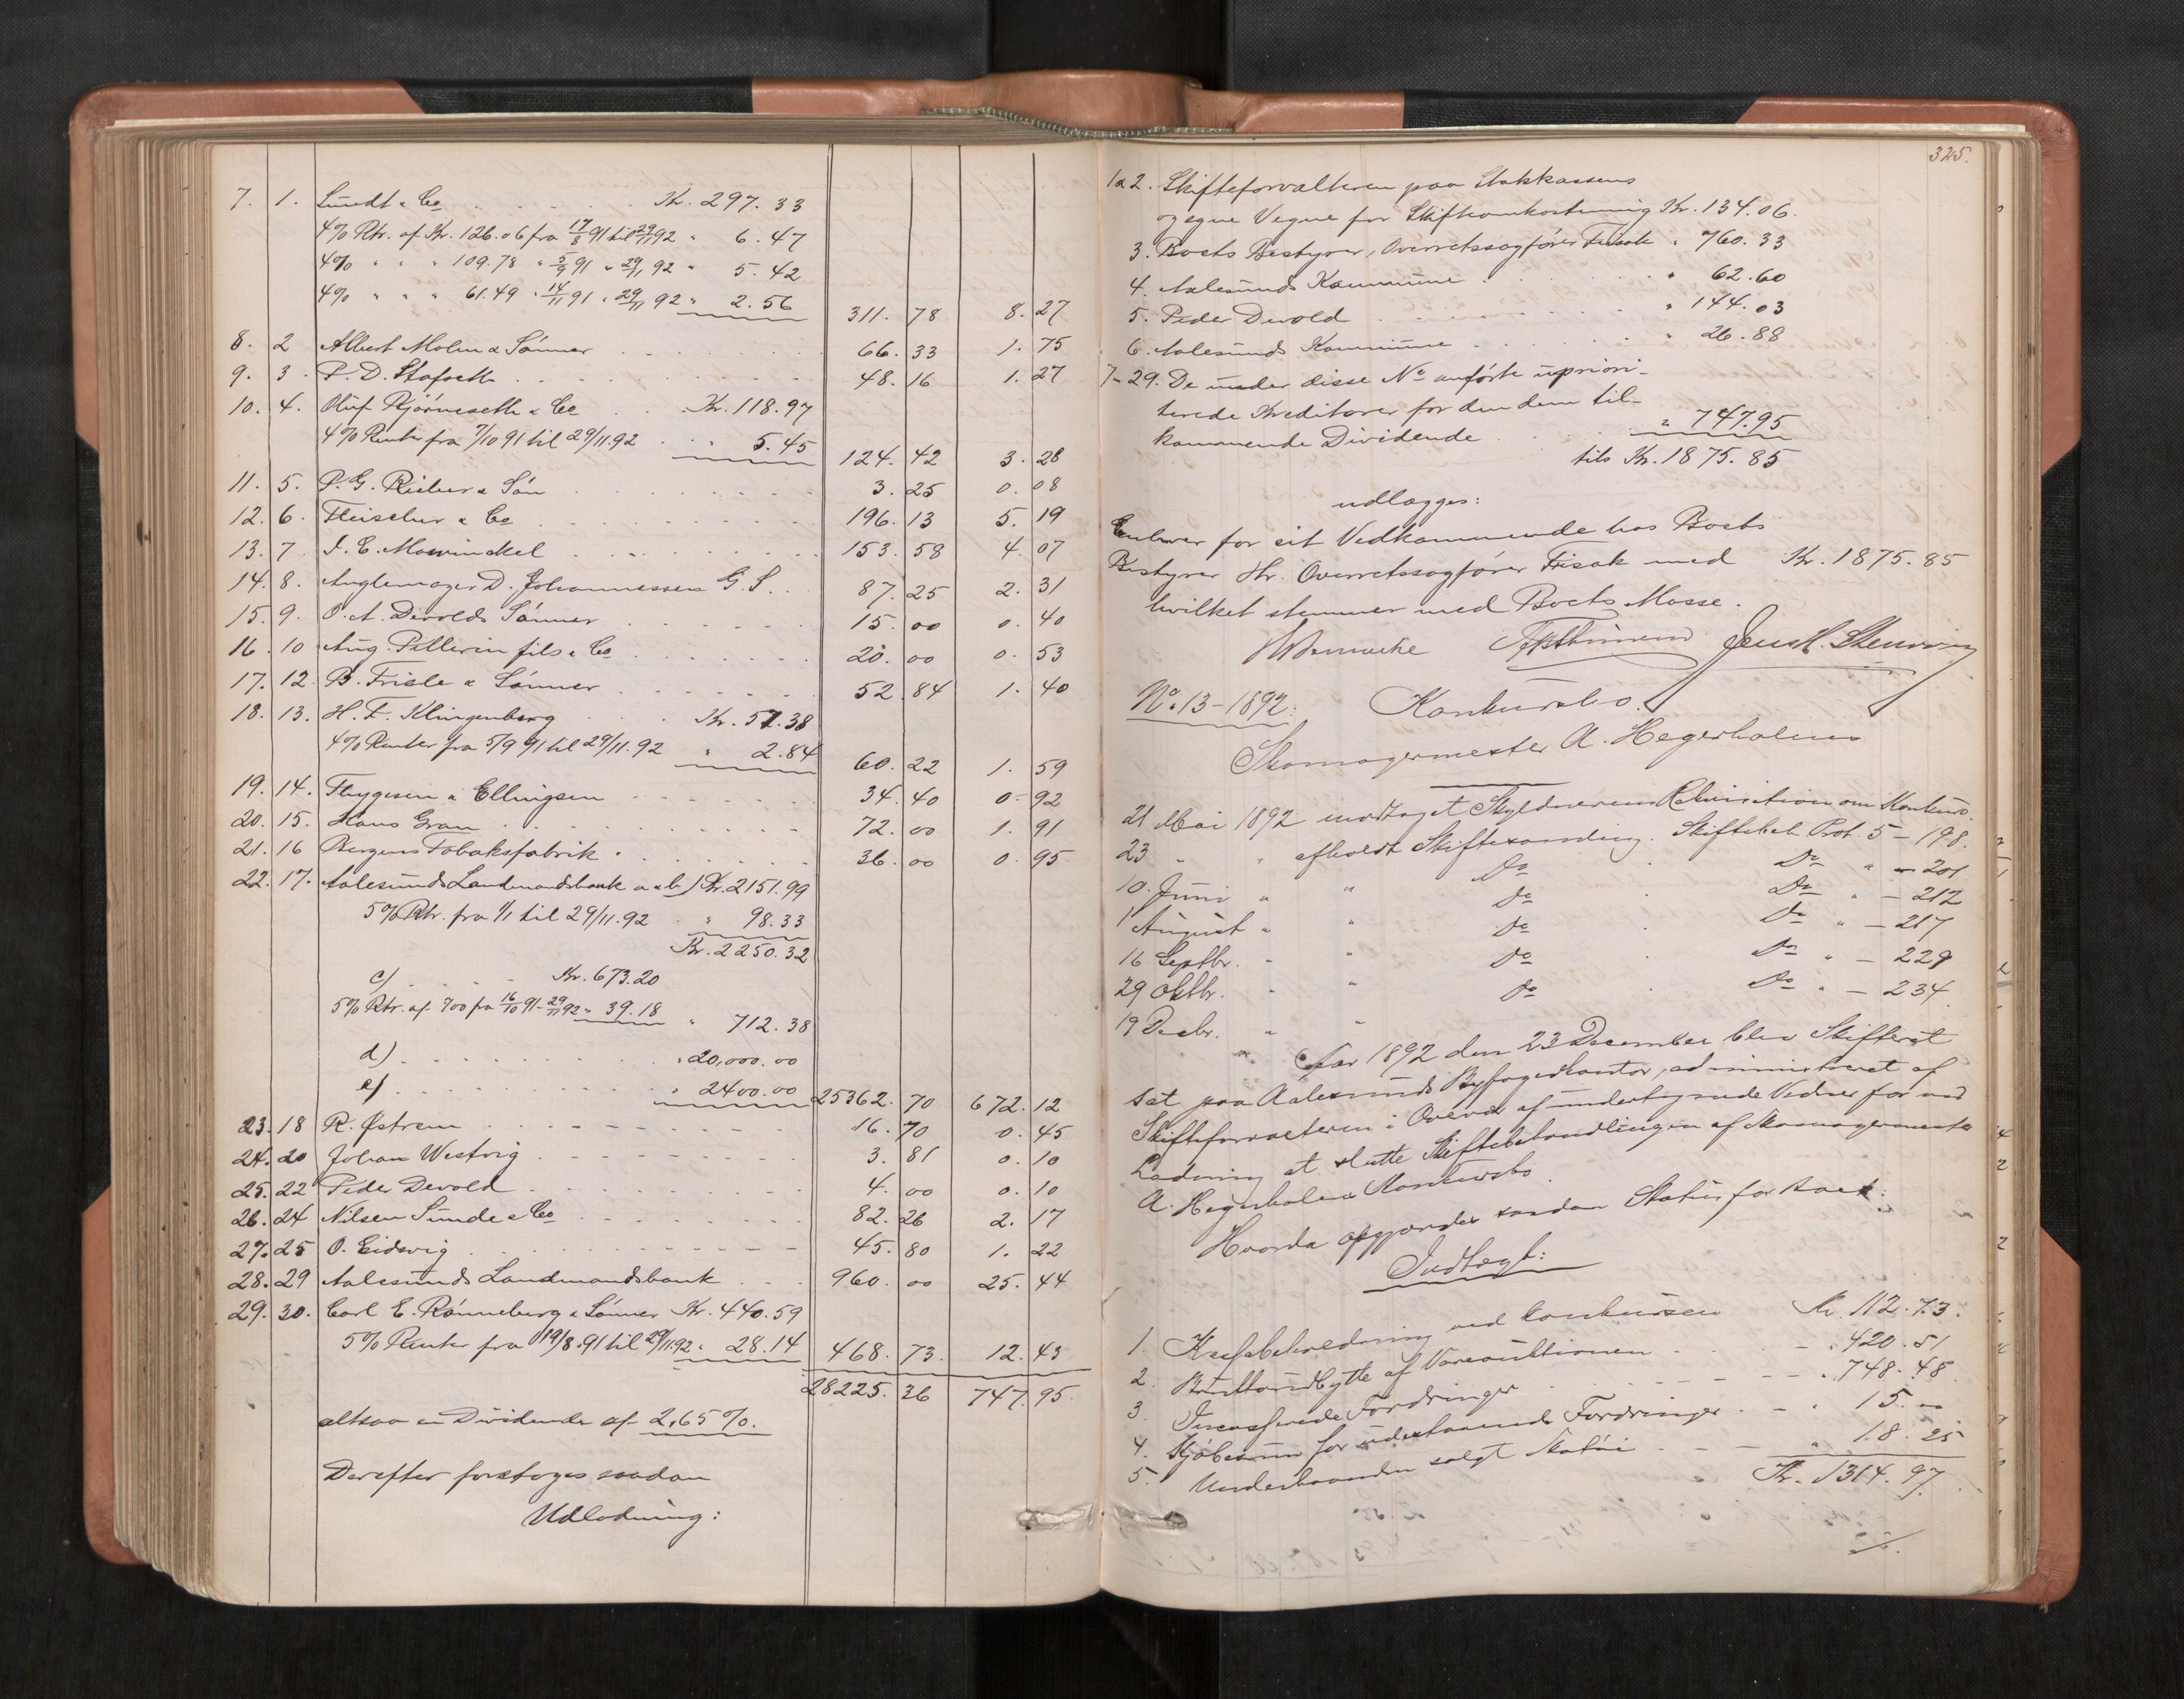 7. 1. Lundt & Co . . . . . Kr. 297. 33
4% Rtr. af Kr. 126.06 fra 17/8 91 til 29/11 92 " 6. 47
4% " " " 109.78 " 5/9 91 " 29/11 92 " 5. 42
4% " " " 61.49 " 14/11 91 " 29/11 92 " 2. 56 311. 78 8. 27
8. 2 Albert Molm & Sønner . . . . 66. 33 1. 75
9. 3. P. D. Stafseth . . . . 48. 16 1. 27
10. 4. Oluf Bjørneseth & Co . . . Kr. 118.97
4% Renter fra 7/10 91 til 29/11.92 . . " 5.45 124. 42 3. 28
11. 5. P. G. Rieber & Søn . . . . 3. 25 0. 08
12. 6. Fleischer & Co . . . . 196. 13 5. 19
13. 7 J. E. Mowinckel . . . . 153. 58 4. 07
14. 8. D. Johannessen G. S. . . 87. 25 2. 31
15. 9. O. A. Devolds Sønner . . . . 15. 00 0. 40
16. 10 Aug. Pellerin fils & Co . . . . 20. 00 0. 53
17. 12. B. Friele & Sønner . . . . 52. 84 1. 40
18. 13. H. F. Klingenberg . . . Kr. 57.38
4% Renter fra 5/9 91 til 29/11.92 " 2.84 60. 22 1. 59
19. 14. Thygesen & Ellingsen . . . . 34. 40 0. 92
20. 15. Hans Gran . . . . 72. 00 1. 91
21. 16 Bergens Tobaksfabrik . . . . 36. 00 0. 95
22. 17. Aalesunds Landmandsbank a & b) Kr. 2151.99
5% Rtr. fra 1/1 til 29/11.92 . " 98.33
Kr. 2250.32
c) . . . . Kr. 673.20
5% Rtr. af 700 fra 16/10 91 - 29/11 92 " 39.18 " 712.38
d) . . . . " 20,000.00
e) . . . . " 2400.00 25362. 70 672. 12
23. 18 R. Østrem . . . . 16. 70 0. 45
24. 20 Johan Westvig . . . . 3. 81 0. 10
25. 22 Peder Devold . . . . 4. 00 0. 10
26. 24 Nilsen Sunde & Co . . . . 82. 26 2. 17
27. 25 O. Eidsvig . . . . 45. 80 1. 22
28. 29 Aalesunds Landmandsbank . . . 960. 00 25. 44
29. 30. Carl E. Rønneberg & Sønner Kr. 440.59
5% Renter fra 19/8.91 til 29/11 92 " 28.14 468. 73. 12. 43
28225. 36 747. 95.
altsaa en Dividende af 2,65%.
Derefter foretoges saadan
Udlodning:
325.
1 & 2. Skifteforvalteren paa Statskassens
og egne Vegne for Skifteomkostning Kr. 134.06.
3. Boets Bestyrer, Overretssagfører Frisak " 760.33
4. Aalesunds Kommune . . . . " 62.60
5. Peder Devold . . . . " 144.03
6. Aalesunds Kommune . . . . " 26.88
7-29. De under disse No anførte upriori-
terede Kreditorer for den dem til-
kommende Dividende . . . " 747.95
tils Kr. 1875.85
udlægges:
Enhver for sit Vedkommende hos Boets
Bestyrer Hr. Overretssagfører Frisak med Kr. 1875.85
hvilket stemmer med Boets Masse.
No. 13 - 1892: Konkursbo.
Skomagermester A. Hegerholms
21 Mai 1892 modtaget Skyldnerens Rekvisition om Konkurs.
23 " " afholdt Skiftesamling. Skiftebeh. Prot. 5 - 198.
10. Juni " " Do . Do " - 201
1 August " " Do . Do " - 212
16 Septbr. " " Do . Do " - 217
29 Oktbr. " " Do . Do " - 229
19 Decbr. " " Do . Do " - 234.
Aar 1892 den 23 December blev Skifteret
sat paa Aalesunds Byfogedkontor, administreret af
Skifteforvalteren i Overvær af undertegnede Vidner for ved
Ladning at slutte Skiftebehandlingen af Skomagermester
A. Hegerholms Konkursbo.
Hvorda opgjordes saadan Status for Boet:
Indtægt:
1. Kassebeholdning ved Konkursen Kr. 112.73.
2. Bruttoudbytte af Vareauktionen . . - " 420.51
3. Incasserede Fordringer . . . . " 748.48.
4. Kjøbesum for udestaaende Fordringer . - " 15. 00
5. Underhaanden solgt Skotøi . - - " 18.25
Kr. 1314.97.